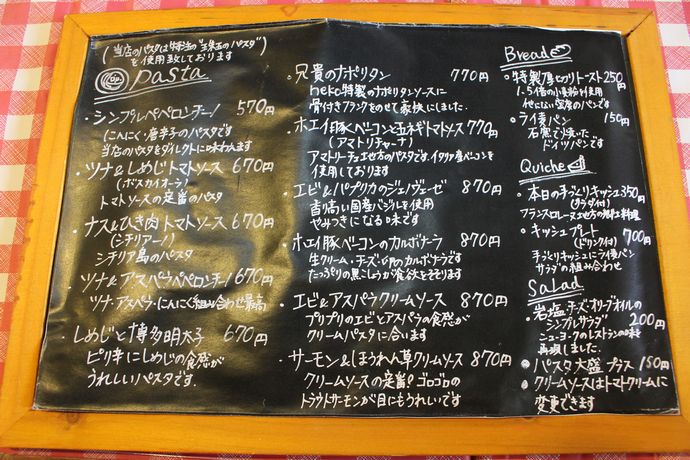 (当店のパスタは特注の"玉のパスタ")
を使用致しております
Pasta
・シンプルペペロンチーノ 570円
にんにく・唐辛子のパスタです
当店のパスタをダイレクトに味わえます
・ツナ&しめじトマトソース 670円
(ボスカイオーラ)
トマトソースの定番のパスタ
・ナス&ひき肉トマトソース 670円
(シチリアーノ)
シチリア島のパスタ
・ツナ&アスパラペペロンチーノ 670円
ツナ・アスパラ・にんにく組み合わせ最高
・しめじと博多明太子 670円
ピリ辛にしめじの食感が
うれしいパスタです。
・兄貴のナポリタン 770円
neko特製のナポリタンソースに
骨付きフランクをのせて豪快にしました
・ホエイ豚ベーコンと玉ネギトマトソース 770円
(アマトリチャーナ)
アマトリーチェ地方のパスタです。イタリア産ベーコンを
使用しております
・エビ&パプリカのジェノヴェーゼ 870円
香り高い国産バジルを使用
やみつきになる味です
・ホエイ豚ベーコンのカルボナーラ 870円
生クリーム・チーズ・卵のカルボナーラです
たっぷりの黒こしょうが食欲をそそります
・エビ&アスパラクリームソース 870円
プリプリのエビとアスパラの食感が
クリームパスタに合います
・サーモン&ほうれん草クリームソース 870円
クリームソースの定番!ゴロゴロの
トラウトサーモンが目にもうれしいです
Bread
・特製厚切りトースト 250円
1.5倍の小麦粉を使用
他にない密度のパンです
・ライ麦パン 150円
石窯で焼いた
ドイツパンです
Quiche
・本日の手づくりキッシュ 350円
(サラダ付)
フランスロレーヌ地方の郷土料理
・キッシュプレート 700円
(ドリンク付)
手づくりキッシュにライ麦パン
サラダの組み合わせ
Salad
・岩塩・チーズ・オリーブオイルの
シンプルサラダ 200円
ニューヨークのレストランの味を
再現しました
・パスタ大盛プラス 150円
・クリームソースはトマトクリームに
変更できます